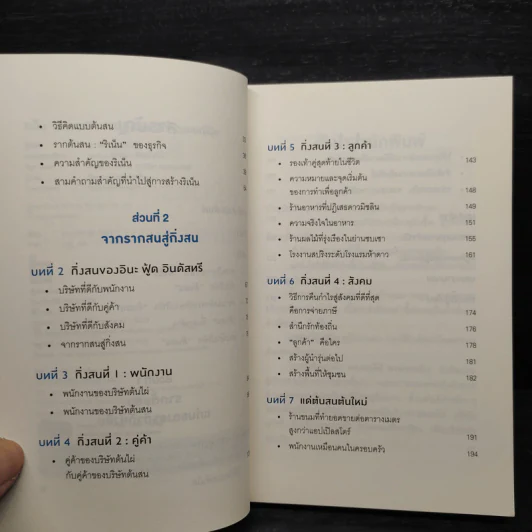 • วิธีคิดแบบต้นสน
• รากต้นสน : "ริเน็น" ของธุรกิจ
• ความสำคัญของริเน็น
• สามคำถามสำคัญที่นำไปสู่การสร้างริเน็น
ส่วนที่ 2
จากรากสนสู่กิ่งสน
บทที่ 2 กิ่งสนของอินะ ฟู้ด อินดัสทรี
• บริษัทที่ดีกับพนักงาน
• บริษัทที่ดีกับคู่ค้า
• บริษัทที่ดีกับสังคม
• จากรากสนสู่กิ่งสน
บทที่ 3 กิ่งสนที่ 1 : พนักงาน
• พนักงานของบริษัทต้นไผ่
• พนักงานของบริษัทต้นสน
บทที่ 4 กิ่งสนที่ 2 : คู่ค้า
• คู่ค้าของบริษัทต้นไผ่
กับคู่ค้าของบริษัทต้นสน
บทที่ 5 กิ่งสนที่ 3 : ลูกค้า
• รองเท้าคู่สุดท้ายในชีวิต 143
• ความหมายและจุดเริ่มต้น
ของการทำเพื่อลูกค้า 148
• ร้านอาหารที่ปฏิเสธดาวมิชลิน 149
• ความจริงใจในอาหาร 151
• ร้านผลไม้ที่รุ่งเรืองในย่านซบเซา 156
• โรงงานสปริงระดับโรงแรมห้าดาว 161
บทที่ 6 กิ่งสนที่ 4 : สังคม
• วิธีการคืนกำไรสู่สังคมที่ดีที่สุด
คือการจ่ายภาษี 174
• สำนึกรักท้องถิ่น 176
• "ลูกค้า" คือใคร 178
• สร้างผู้นำรุ่นต่อไป 181
• สร้างพื้นที่ให้ชุมชน 182
บทที่ 7 แด่ต้นสนต้นใหม่
• ร้านขนมที่ทำยอดขายต่อตารางเมตร
สูงกว่าแอปเปิลสโตร์ 191
• พนักงานเหมือนคนในครอบครัว 194